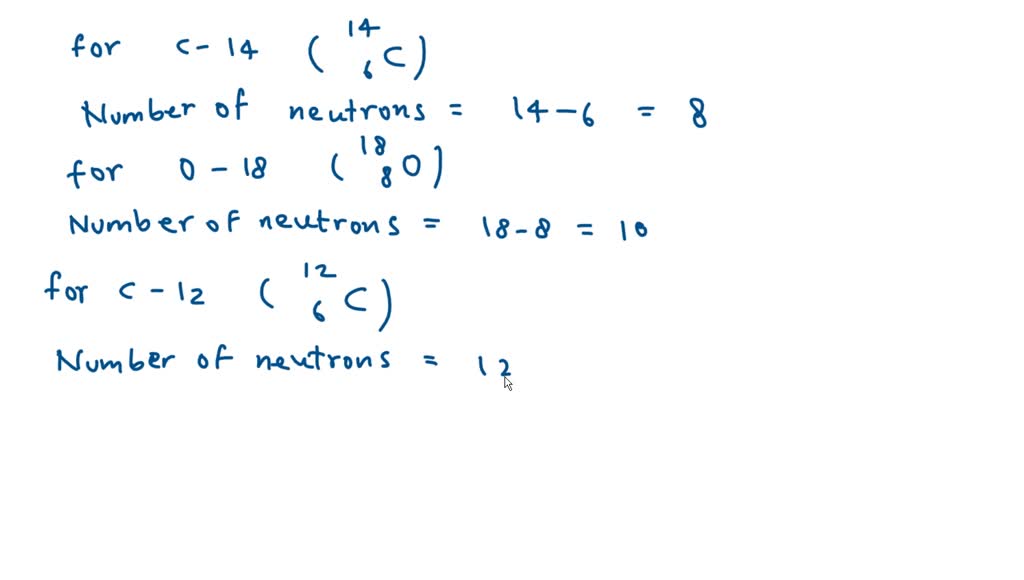 for c - 14 ( 14 6 C )
Number of neutrons = 14 - 6 = 8
for O - 18 ( 18 8 O )
Number of neutrons = 18 - 8 = 10
for c - 12 ( 12 6 C )
Number of neutrons = 12